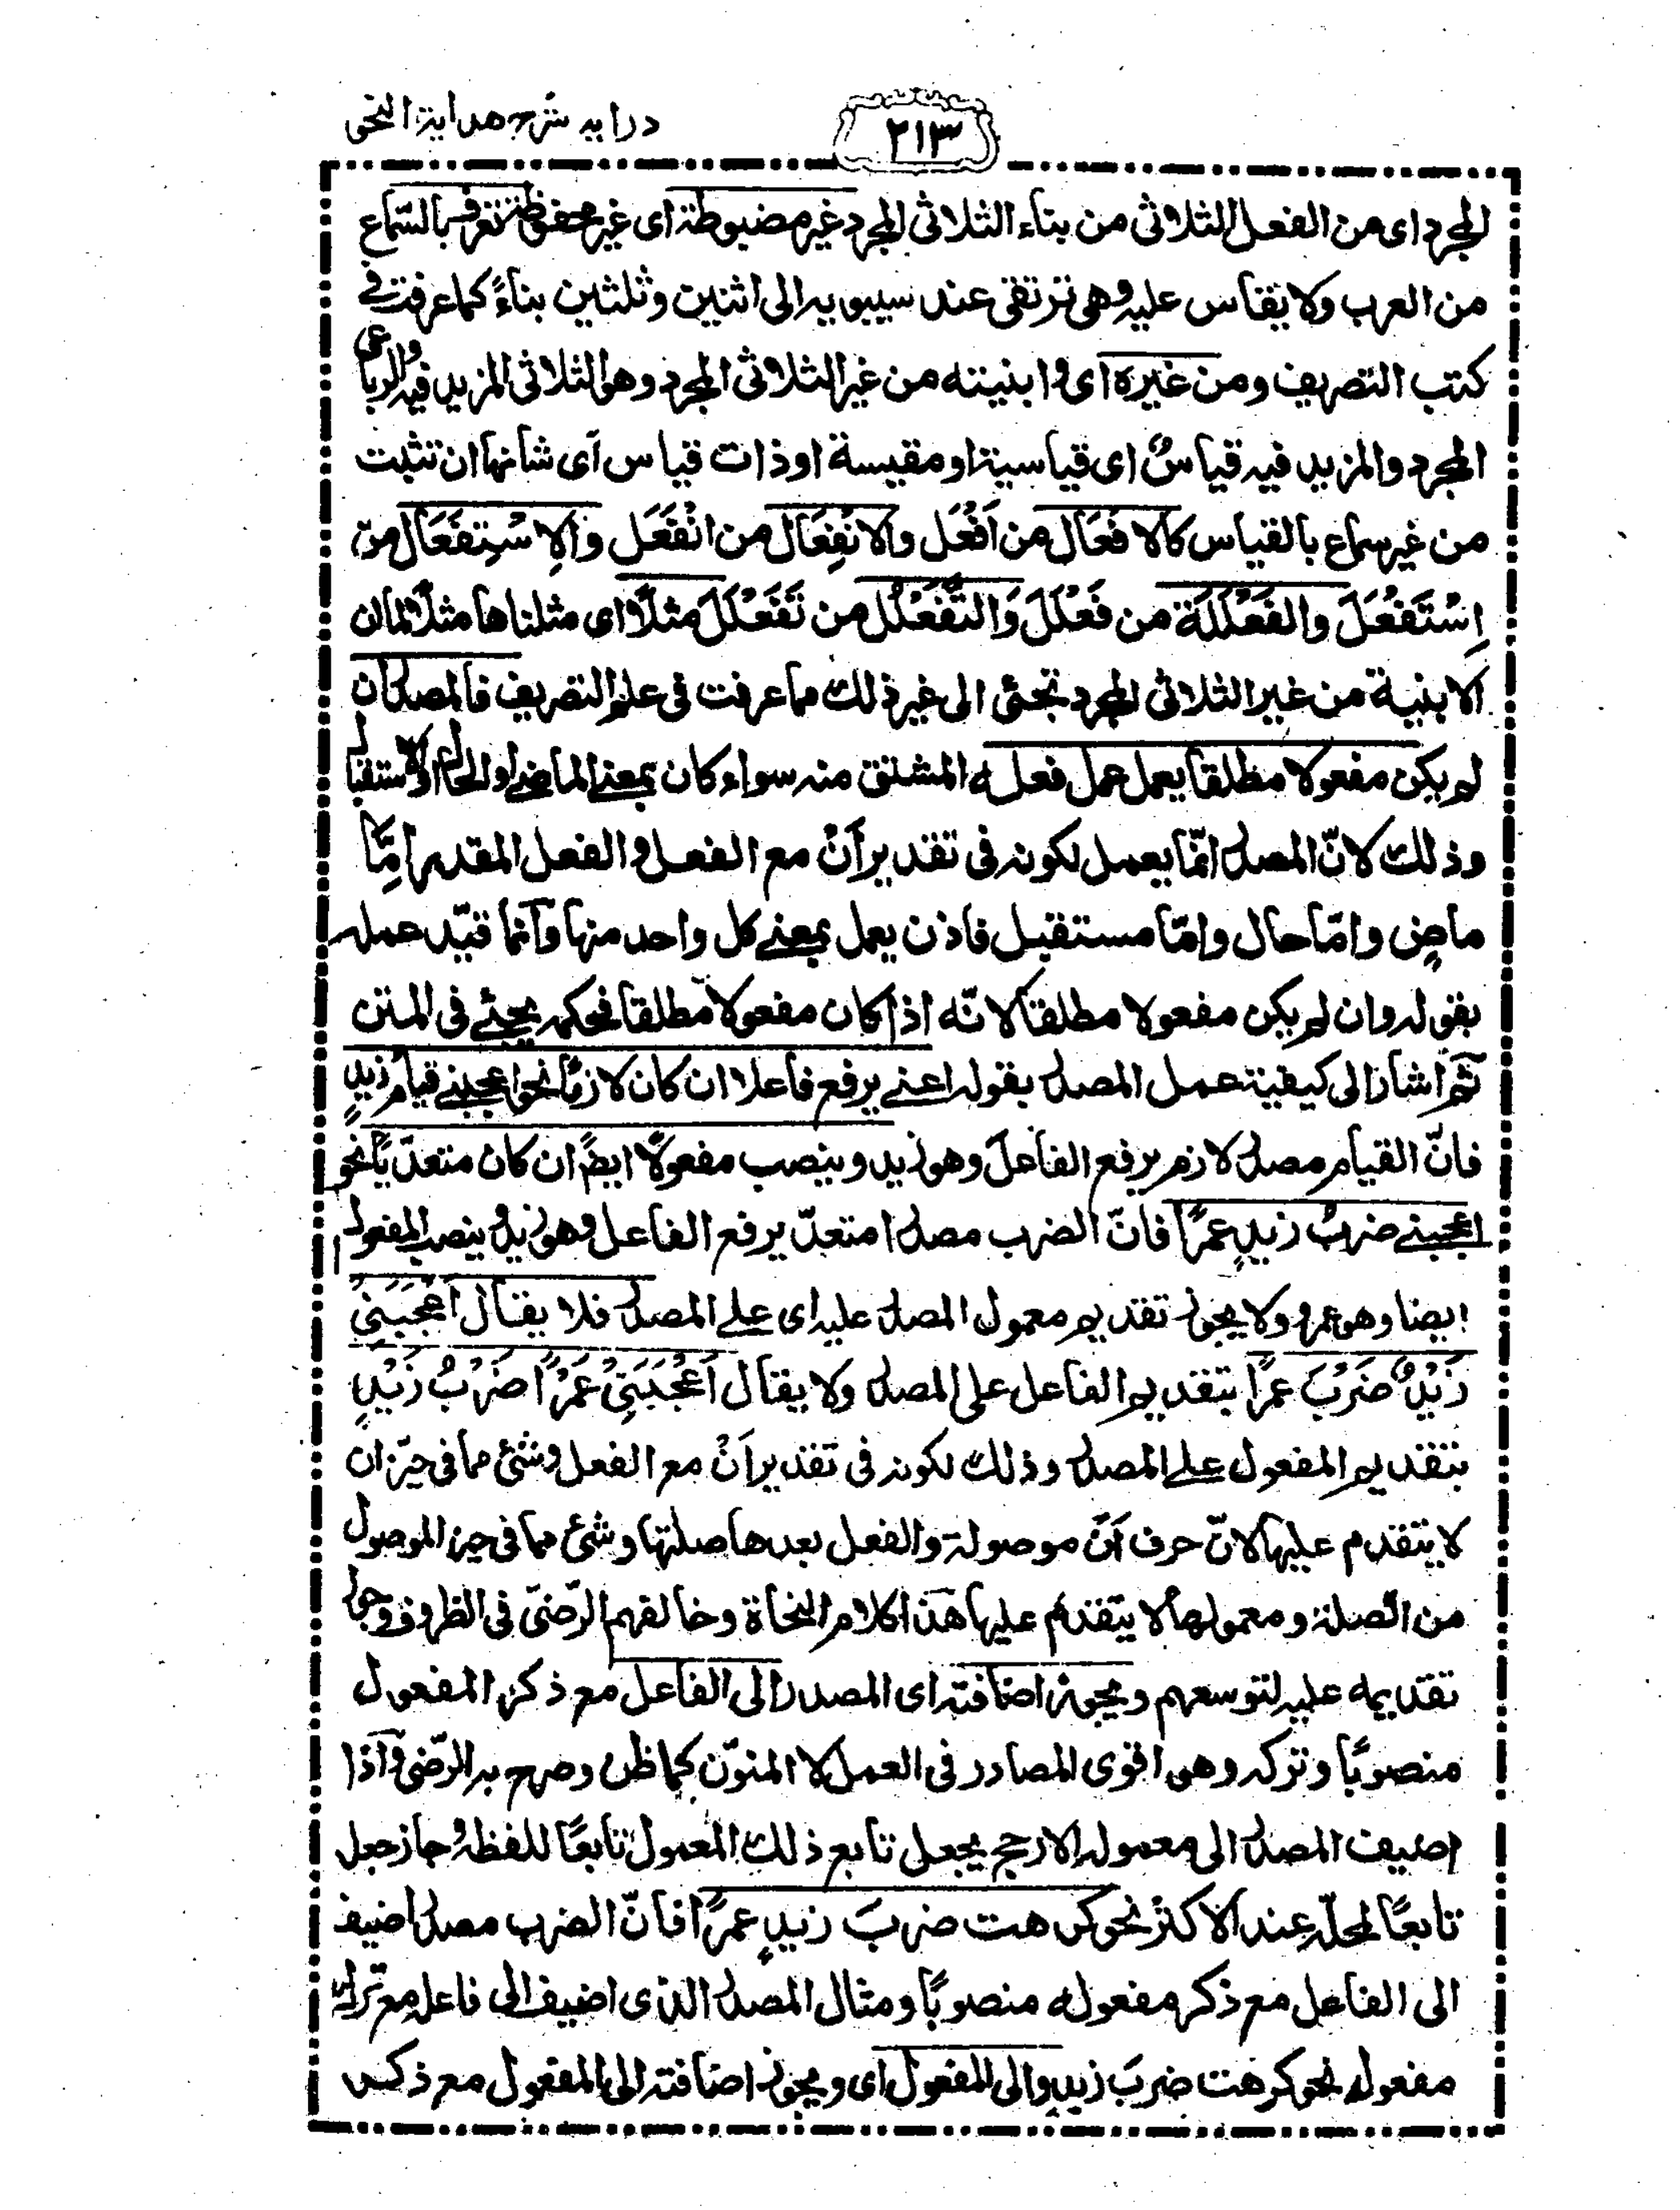 درايہ شرح هداية النحو
٢١٣
المجرد اى من الفعل الثلاثى من بناء الثلاثى المجرد غير مضبوطة اى غير محفوظة تعرف بالسّماع
من العرب ولا يقاس عليہ وهى ترتقى عند سيبويہ الى اثنين وثلثين بناءً كما عرفت فى
كتب التصريف ومن غيره اى وابنيته من غير الثلاثى المجرد وهو الثلاثى المزيد فيہ والرباعى
المجرد والمزيد فيہ قياسٌ اى قياسية او مقيسة او ذات قياس آى شانها ان تثبت
من غير سماع بالقياس كالافْعَال من اَفْعَل والانْفِعَال من انْفَعَل والِاسْتِفْعَال من
اِسْتَفْعَلَ والفَعْلَلَة من فَعْلَلَ وَالتَّفَعْلُل من تَفَعْلَلَ مثلاً اى مثلناها مثلاً لمان
الابنية من غير الثلاثى المجرد تجئى الى غير ذلك مما عرفت فى علم التصريف فالمصدر ان
لم يكن مفعولا مطلقا يعمل عمل فعله المشتق منہ سواء كان بمعنے الماضے او الحال او الاستقبال
وذلك لانّ المصدر انّما يعمل لكونہ فى تقدير اَنْ مع الفعل والفعل المقدر اِمّا
ماضٍ وامّا حال وامّا مستقبل فاذن يعمل بمعنے كل واحد منها وآنما قيّد عملہ
بقولہ وان لم يكن مفعولا مطلقا لانّه اذا كان مفعولاً مطلقا فحكمہ يجئے فى المتن
ثم اشار الى كيفية عمل المصدر بقولہ اعنے يرفع فاعلا ان كان لازمًا نحو اعجبنے قيام زيدٍ
فانّ القيام مصدر لازم يرفع الفاعلَ وهو زيد وينصب مفعولاً ايضً ان كان متعدّيًا نحو
اعجبنے ضربُ زيدٍ عمرًا فانّ الضرب مصدر متعدّ يرفع الفاعل وهو زيد وينصب المفعول
ايضا وهو عمرو ولا يجوز تقديم معمول المصدر عليہ اى علے المصدر فلا يقال اَعْجَبَنِىْ
زَيْدٌ ضَرْبَ عمرًا بتقديم الفاعل على المصدر ولا يقال اَعْجَبَنِىْ عَمْرًا ضَرْبُ زَيْدٍ
بتقديم المفعول علے المصدر وذلك لكونہ فى تقدير اَنْ مع الفعل وشئ مما فى حيّز ان
لا يتقدم عليها لانّ حرف اَنْ موصولة والفعل بعدها صلتها وشئ مما فى حيز الموصول
من الصّلة ومعمولها لا يتقدم عليها هذا كلام النحاة وخالفهم الرّضىّ فى الظروف وجوّز
تقديمه عليہ لتوسعهم ويجوز اضافتہ اى المصدر الى الفاعل مع ذكر المفعول
منصوبًا وتركہ وهى اقوى المصادر فى العمل لا المنوّن كما ظن وصرح بہ الرّضى وآذا
اضيف المصدر الى معمولہ الارجح يجعل تابع ذلك المعمول تابعًا للفظہ وجاز جعل
تابعًا لمحلّہ عند الاكثر نحو كرهت ضربَ زيدٍ عمرًا فانّ الضرب مصدر اضيف
الى الفاعل مع ذكر مفعوله منصوبًا ومثال المصدر الذى اضيف الى فاعلہ مع ترك
مفعولہ نحو كرهت ضربَ زيدٍ والى المفعول اى ويجوز اضافتہ الى المفعول مع ذكر